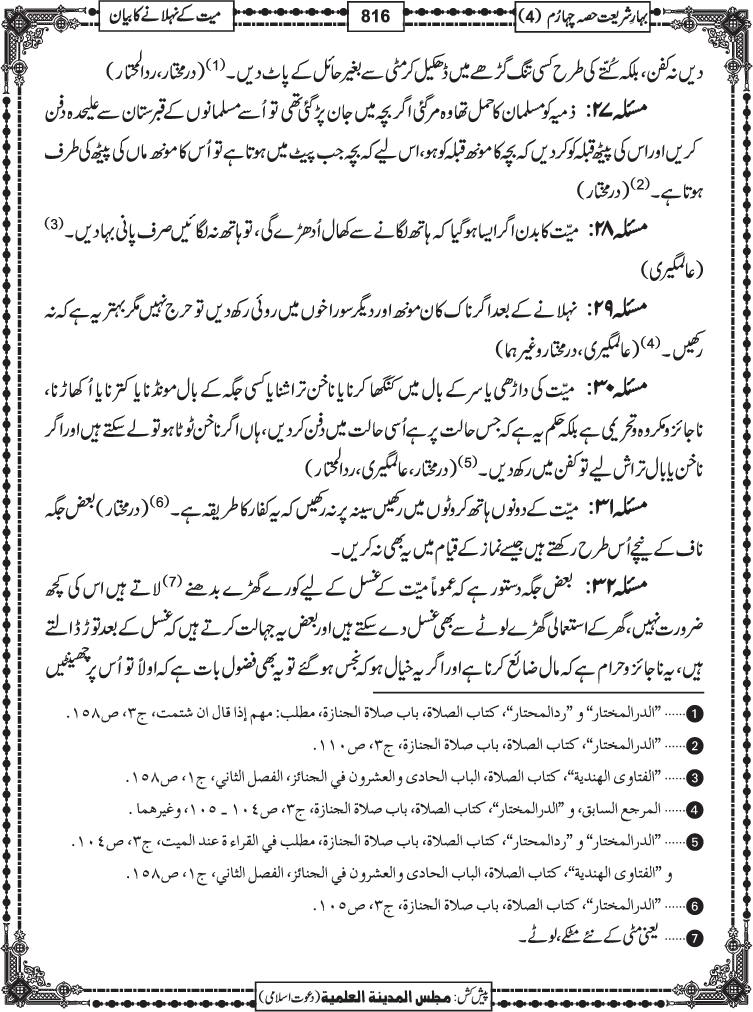 بہارِ شریعت حصہ چہارم (4)
816
میت کے نہلانے کا بیان
دیں نہ کفن، بلکہ کُتے کی طرح کسی تنگ گڑھے میں ڈھکیل کر مٹی سے بغیر حائل کے پاٹ دیں۔ (1) (درمختار، ردالمحتار)
مسئلہ ۲۷: ذمیہ کو مسلمان کا حمل تھا وہ مر گئی اگر بچہ میں جان پڑ گئی تھی تو اُسے مسلمانوں کے قبرستان سے علیحدہ دفن
کریں اور اس کی پیٹھ قبلہ کو کر دیں کہ بچہ کا مونھ قبلہ کو ہو، اس لیے کہ بچہ جب پیٹ میں ہوتا ہے تو اُس کا مونھ ماں کی پیٹھ کی طرف
ہوتا ہے۔ (2) (درمختار)
مسئلہ ۲۸: میّت کا بدن اگر ایسا ہو گیا کہ ہاتھ لگانے سے کھال اُدھڑے گی، تو ہاتھ نہ لگائیں صرف پانی بہا دیں۔ (3)
(عالمگیری)
مسئلہ ۲۹: نہلانے کے بعد اگر ناک کان مونھ اور دیگر سوراخوں میں روئی رکھ دیں تو حرج نہیں مگر بہتر یہ ہے کہ نہ
رکھیں۔ (4) (عالمگیری، درمختار وغیرہما)
مسئلہ ۳۰: میّت کی داڑھی یا سر کے بال میں کنگھا کرنا یا ناخن تراشنا یا کسی جگہ کے بال مونڈنا یا کترنا یا اُکھاڑنا،
ناجائز و مکروہ و تحریمی ہے بلکہ حکم یہ ہے کہ جس حالت پر ہے اُسی حالت میں دفن کر دیں، ہاں اگر ناخن ٹوٹا ہو تو لے سکتے ہیں اور اگر
ناخن یا بال تراش لیے تو کفن میں رکھ دیں۔ (5) (درمختار، عالمگیری، ردالمحتار)
مسئلہ ۳۱: میّت کے دونوں ہاتھ کروٹوں میں رکھیں سینہ پر نہ رکھیں کہ یہ کفار کا طریقہ ہے۔ (6) (درمختار) بعض جگہ
ناف کے نیچے اُس طرح رکھتے ہیں جیسے نماز کے قیام میں یہ بھی نہ کریں۔
مسئلہ ۳۲: بعض جگہ دستور ہے کہ عموماً میّت کے غسل کے لیے کورے گھڑے بدھنے (7) لاتے ہیں اس کی کچھ
ضرورت نہیں، گھر کے استعمالی گھڑے لوٹے سے بھی غسل دے سکتے ہیں اور بعض یہ جہالت کرتے ہیں کہ غسل کے بعد توڑ ڈالتے
ہیں، یہ ناجائز و حرام ہے کہ مال ضائع کرنا ہے اور اگر یہ خیال ہو کہ نجس ہو گئے تو یہ بھی فضول بات ہے کہ اولاً تو اُس پر چھینٹیں
1 ...... "الدرالمختار" و "ردالمحتار"، کتاب الصلاة، باب صلاة الجنازة، مطلب: مهم إذا قال ان شتمت، ج۳، ص۱۵۸.
2 ...... "الدرالمختار"، کتاب الصلاة، باب صلاة الجنازة، ج۳، ص۱۱۰.
3 ...... "الفتاوی الهندیة"، کتاب الصلاة، الباب الحادی والعشرون في الجنائز، الفصل الثاني، ج۱، ص۱۵۸.
4 ...... المرجع السابق، و "الدرالمختار"، کتاب الصلاة، باب صلاة الجنازة، ج۳، ص۱۰٤ ـ ۱۰۵، وغیرهما .
5 ...... "الدرالمختار" و "ردالمحتار"، کتاب الصلاة، باب صلاة الجنازة، مطلب في القراءة عند المیت، ج۳، ص۱۰٤.
و "الفتاوی الهندیة"، کتاب الصلاة، الباب الحادی والعشرون في الجنائز، الفصل الثاني، ج۱، ص۱۵۸.
6 ...... "الدرالمختار"، کتاب الصلاة، باب صلاة الجنازة، ج۳، ص۱۰۵.
7 ...... یعنی مٹی کے نئے مٹکے، لوٹے۔
پیش کش: مجلس المدینة العلمیة (دعوت اسلامی)